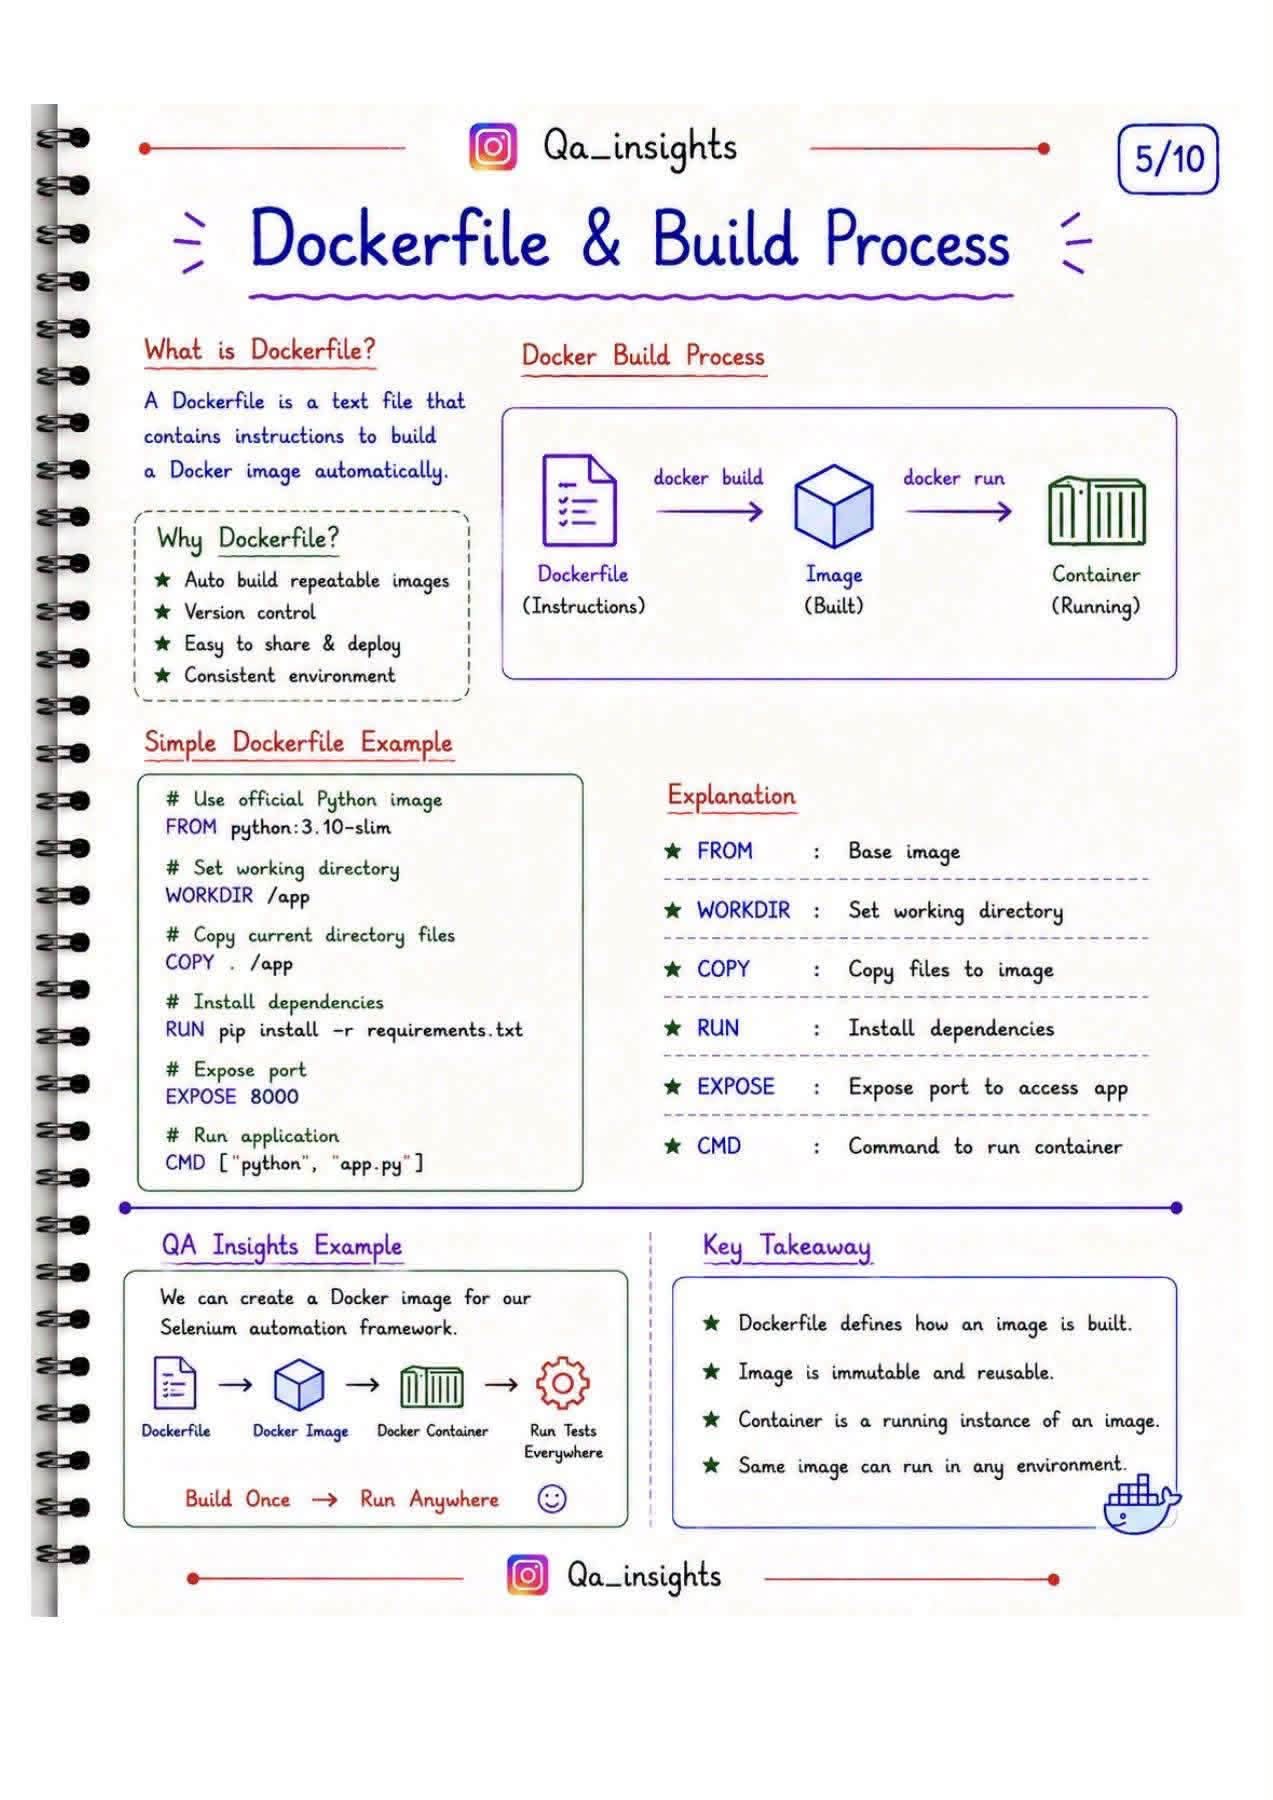 Qa_insights
5/10
Dockerfile & Build Process
What is Dockerfile?
A Dockerfile is a text file that
contains instructions to build
a Docker image automatically.
Why Dockerfile?
★ Auto build repeatable images
★ Version control
★ Easy to share & deploy
★ Consistent environment
Docker Build Process
docker build
docker run
Dockerfile
(Instructions)
Image
(Built)
Container
(Running)
Simple Dockerfile Example
# Use official Python image
FROM python:3.10-slim
# Set working directory
WORKDIR /app
# Copy current directory files
COPY . /app
# Install dependencies
RUN pip install -r requirements.txt
# Expose port
EXPOSE 8000
# Run application
CMD ["python", "app.py"]
Explanation
★ FROM : Base image
★ WORKDIR : Set working directory
★ COPY : Copy files to image
★ RUN : Install dependencies
★ EXPOSE : Expose port to access app
★ CMD : Command to run container
QA Insights Example
We can create a Docker image for our
Selenium automation framework.
Dockerfile
Docker Image
Docker Container
Run Tests
Everywhere
Build Once → Run Anywhere
Key Takeaway
★ Dockerfile defines how an image is built.
★ Image is immutable and reusable.
★ Container is a running instance of an image.
★ Same image can run in any environment.
Qa_insights